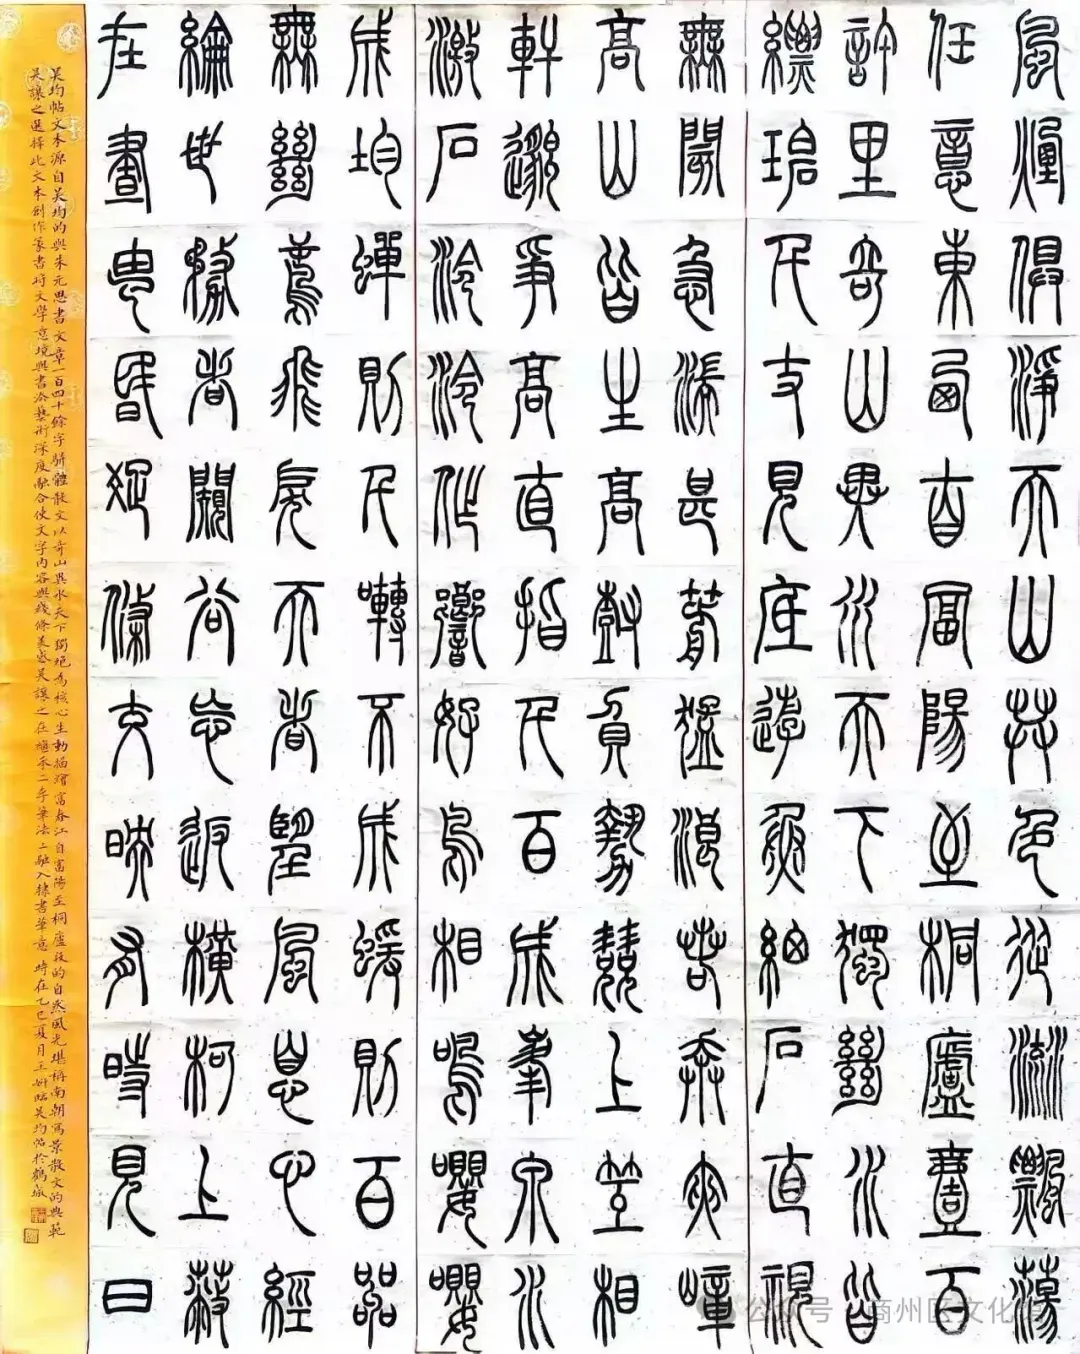 風煙俱淨天山共色從流飄蕩
任意東西自富陽至桐廬壹百
許里奇山異水天下獨絕水皆
縹碧千丈見底游魚細石直視
無閡急湍甚箭猛浪若奔夾嶂
高山皆生高樹負勢競上互相
軒邈爭高直指千百成峯泉水
激石泠泠作響好鳥相鳴嚶嚶
成均蟬則千囀不成蝯則百嘂
無絕鳶飛戾天者望風息心經
綸世務者闚谷忘返橫柯上蔽
在晝曳昏疏條交映有時見日
吳均帖文本源自吳均的與朱元思書文章一百四十餘字駢體散文以奇山異水天下獨絕為核心生動描繪富春江自富陽至桐廬段的自然風光堪稱南朝寫景散文的典範
吳讓之選擇此文本創作篆書時文學意境與書法藝術深度融合使文字內容與綫條美感吳讓之在繼承二李筆法上融入隸書筆意 時在乙巳夏月王妍臨吳均帖於鶴城
公众号·商州区文化馆